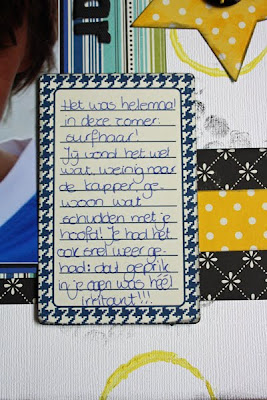 Het was helemaal
in deze zomer:
surfhaar!
Jij vond het wel
wat, weinig naar
de kapper, ge-
woon wat
schudden met je
hoofd! Je had het
ook snel weer ge-
had: dat geprik
in je ogen was héél
irritant!!!